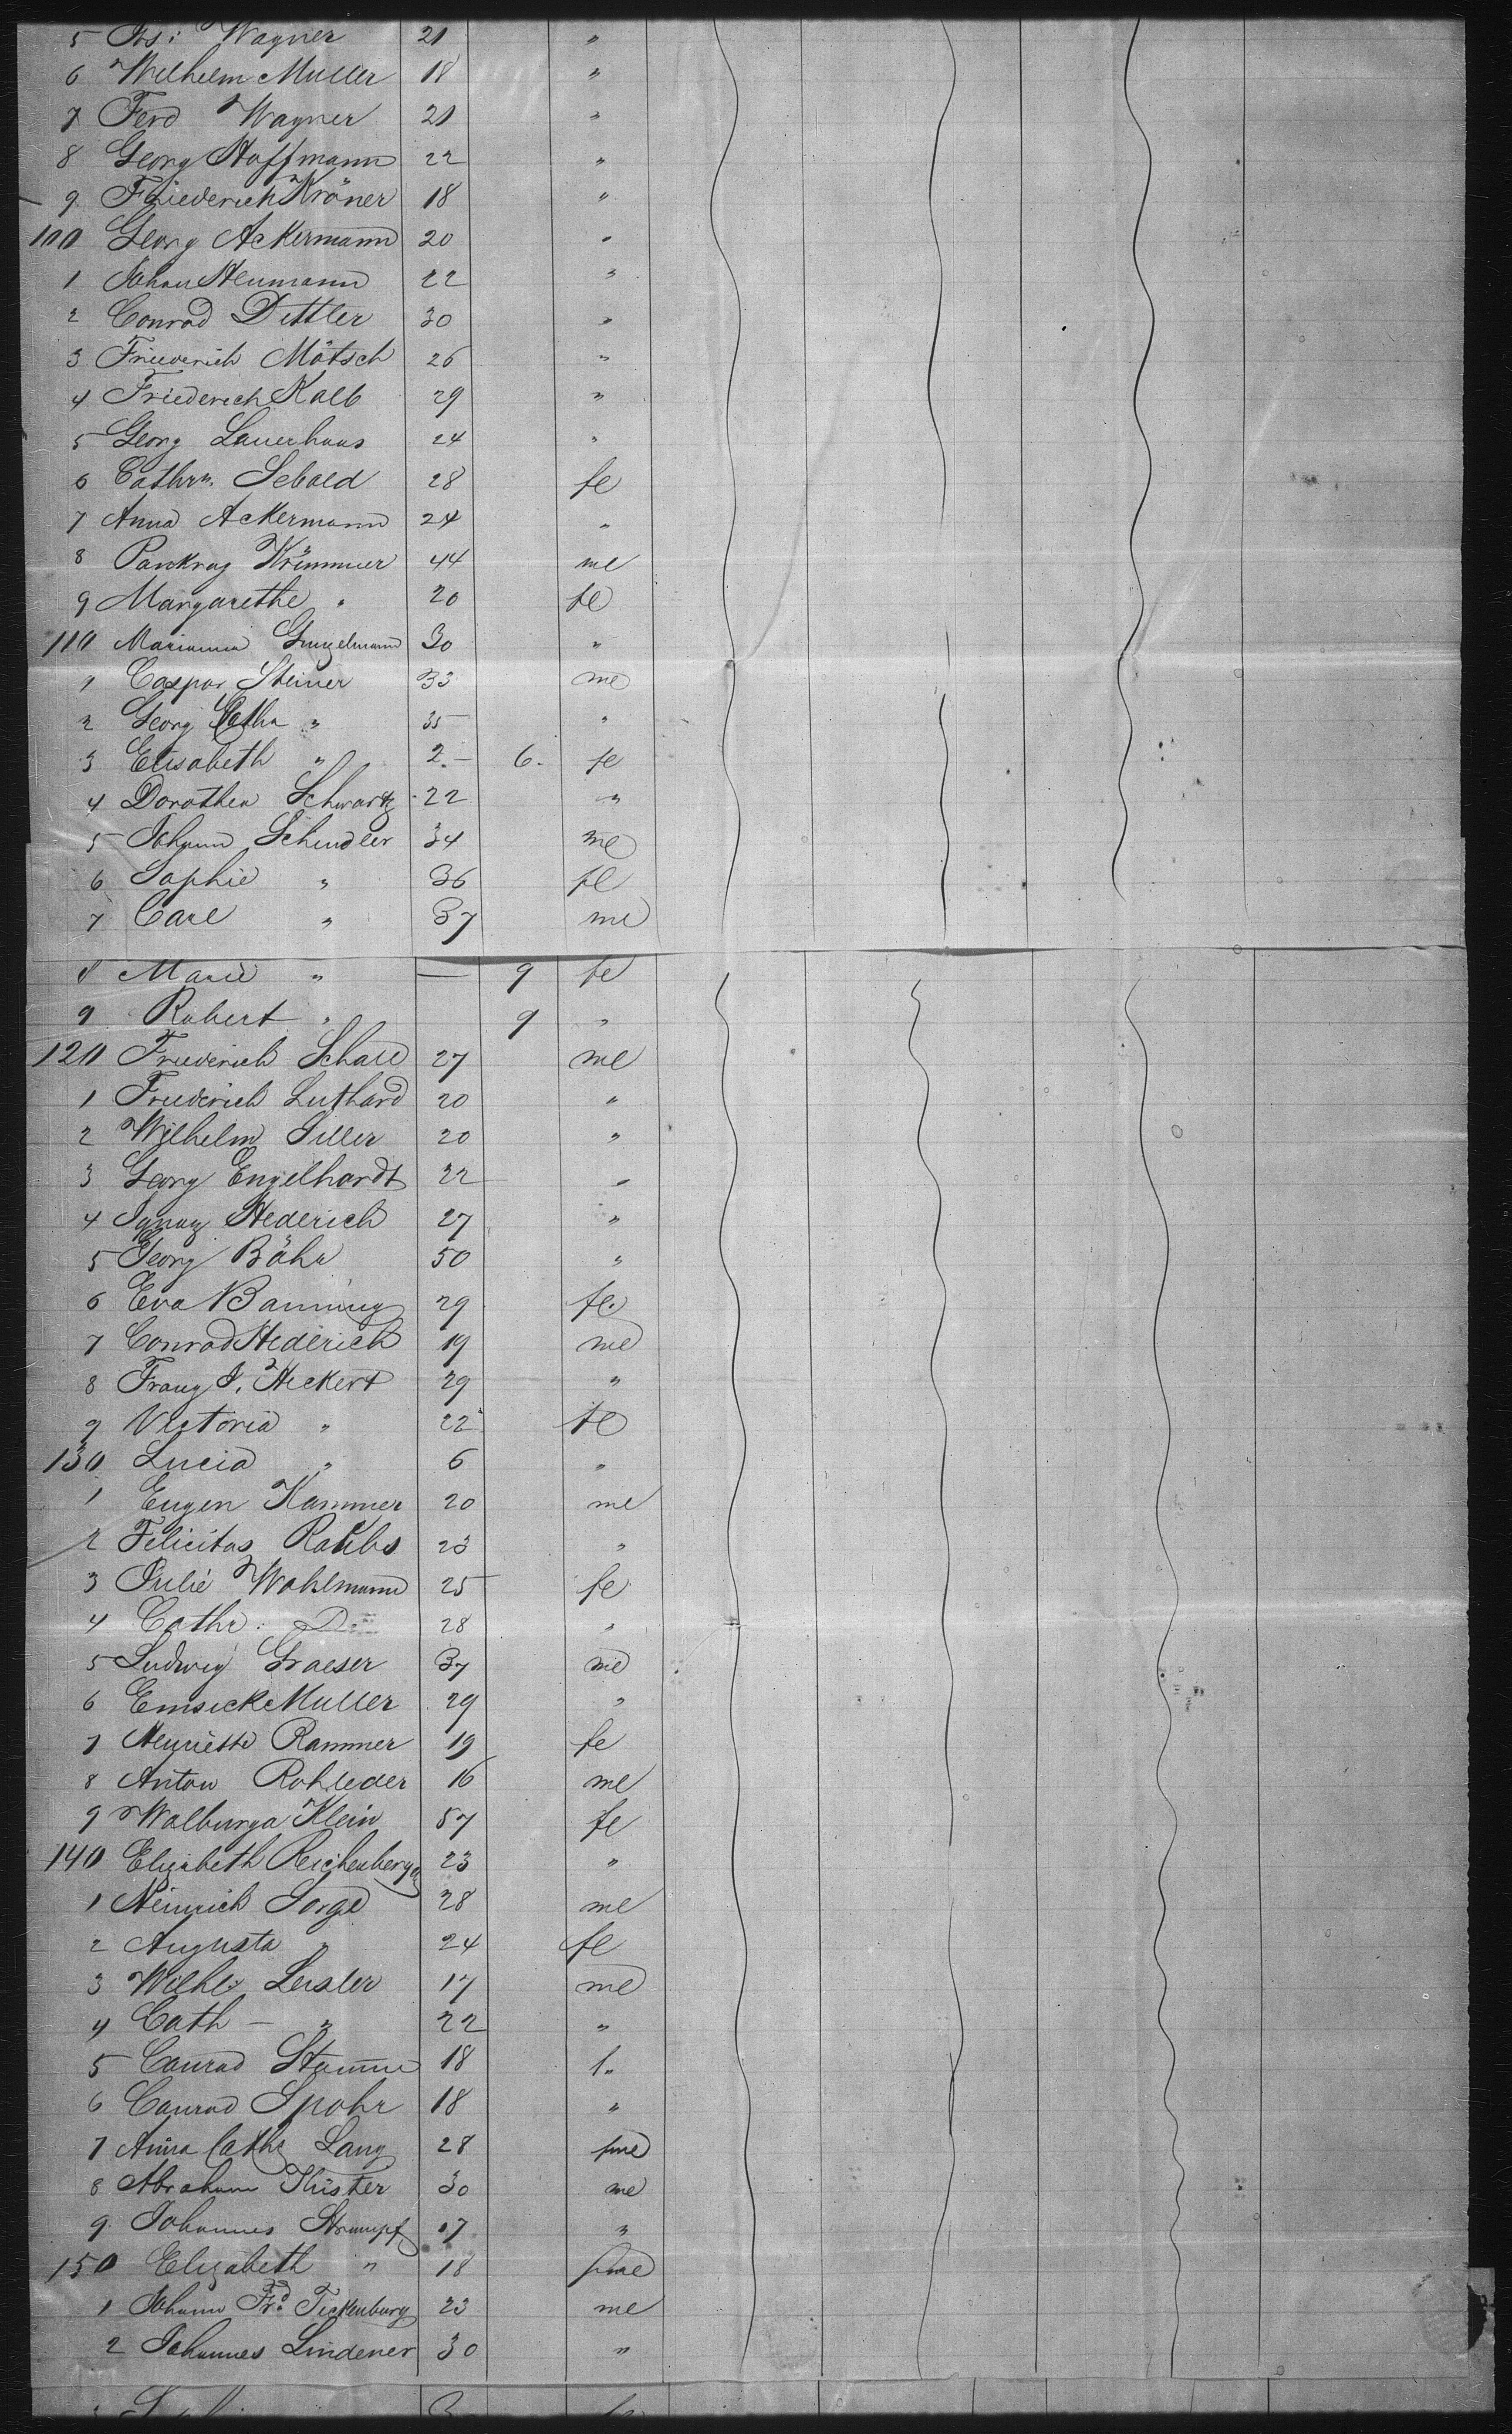 5 Jos: Wagner 21 "
6 Wilhelm Muller 18 "
7 Ferd Wagner 21 "
8 Georg Hoffmann 22 "
9 Friederich Kröner 18 "
100 Georg Ackermann 20 "
1 Johan Heumann 22 "
2 Conrad Dittler 30 "
3 Friederich Mötsch 26 "
4 Friederich Kalb 29 "
5 Georg Lauerhaas 24 "
6 Cathrn. Sebald 28 fe
7 Anna Ackermann 24 "
8 Pankraz Krimmer 44 me
9 Margarethe " 20 fe
110 Marianna 30 "
1 Caspar Steiner 33 me
2 Georg " 35 "
3 Elisabeth " 2 6 fe
4 Dorothea Schwartz 22 "
5 Johann Schindler 34 me
6 Sophie " 36 fe
7 Carl " 37 me
8 Marie " — 9 fe
9 Robert " 9 "
120 Friederich Schall 27 me
1 Friederich Luthard 20 "
2 Wilhelm Siller 20 "
3 Georg Engelhardt 22 "
4 Ignaz Hederich 27 "
5 Georg Böhn 50 "
6 Eva Banning 29 fe
7 Conrad Hederich 19 me
8 Franz J. Heckert 29 "
9 Victoria " 22 fe
130 Lucia " 6 "
1 Eugen Kammer 20 me
2 Felicitas 23 "
3 Julie Wohlmann 25 fe
4 Cathr: 28 "
5 Ludwig Graeser 37 me
6 Muller 29 "
7 Henriette Rammer 19 fe
8 Anton Rohleder 16 me
9 Walburga Klein 57 fe
140 Elizabeth Reichenberger 23 "
1 Heinrich Sorge 28 me
2 Augusta " 24 fe
3 Wilhl. Leisler 17 me
4 Cath — " 22 "
5 Conrad Stamm 18 1.
6 Conrad Spohr 18 "
7 Anna Cathr Lang 28 fme
8 Abraham Küster 30 me
9 Johannes Strumpf 17 "
150 Elizabeth " 18 fme
1 Johann Frd. Teckenburg 23 me
2 Johannes Lindener 30 "